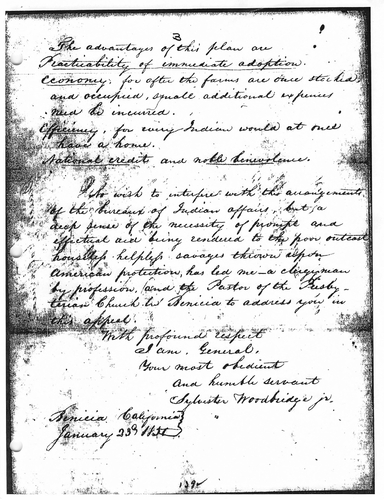 3
The advantages of this plan are
Practicability of immediate adoption.
Economy, for after the farms are once stocked
and occupied, small additional expenses
need be incurred.
Efficiency, for every Indian would at once
have a home.
National credit and noble benevolence.
No wish to interfere with the arrangements
of the bureau of Indian affairs, but a
deep sense of the necessity of prompt and
effectual aid being rendered to the poor outcast
houseless, helpless, savages thrown upon
American protection, has led me—a clergyman
by profession, and the Pastor of the Presby-
terian Church in Benicia to address you in
this appeal.
With profound respect
I am, General,
Your most obedient
And humble servant
Sylvester Woodbridge jr.
Benicia California
January 23d